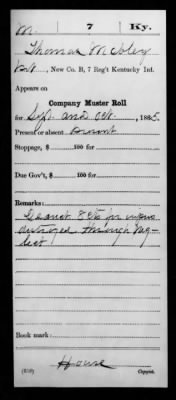 M. 7 Ky.
Thomas McColey
Pvt, New Co. B, 7 Reg't Kentucky Inf.
Appears on
Company Muster Roll
for Sept. and Oct., 1865.
Present or absent Present
Stoppage, $ 100 for
Due Gov't, $ 100 for
Remarks:
Deduct 8 cts for
destroyed through neg-
lect
Book mark:
(858) Copyist.